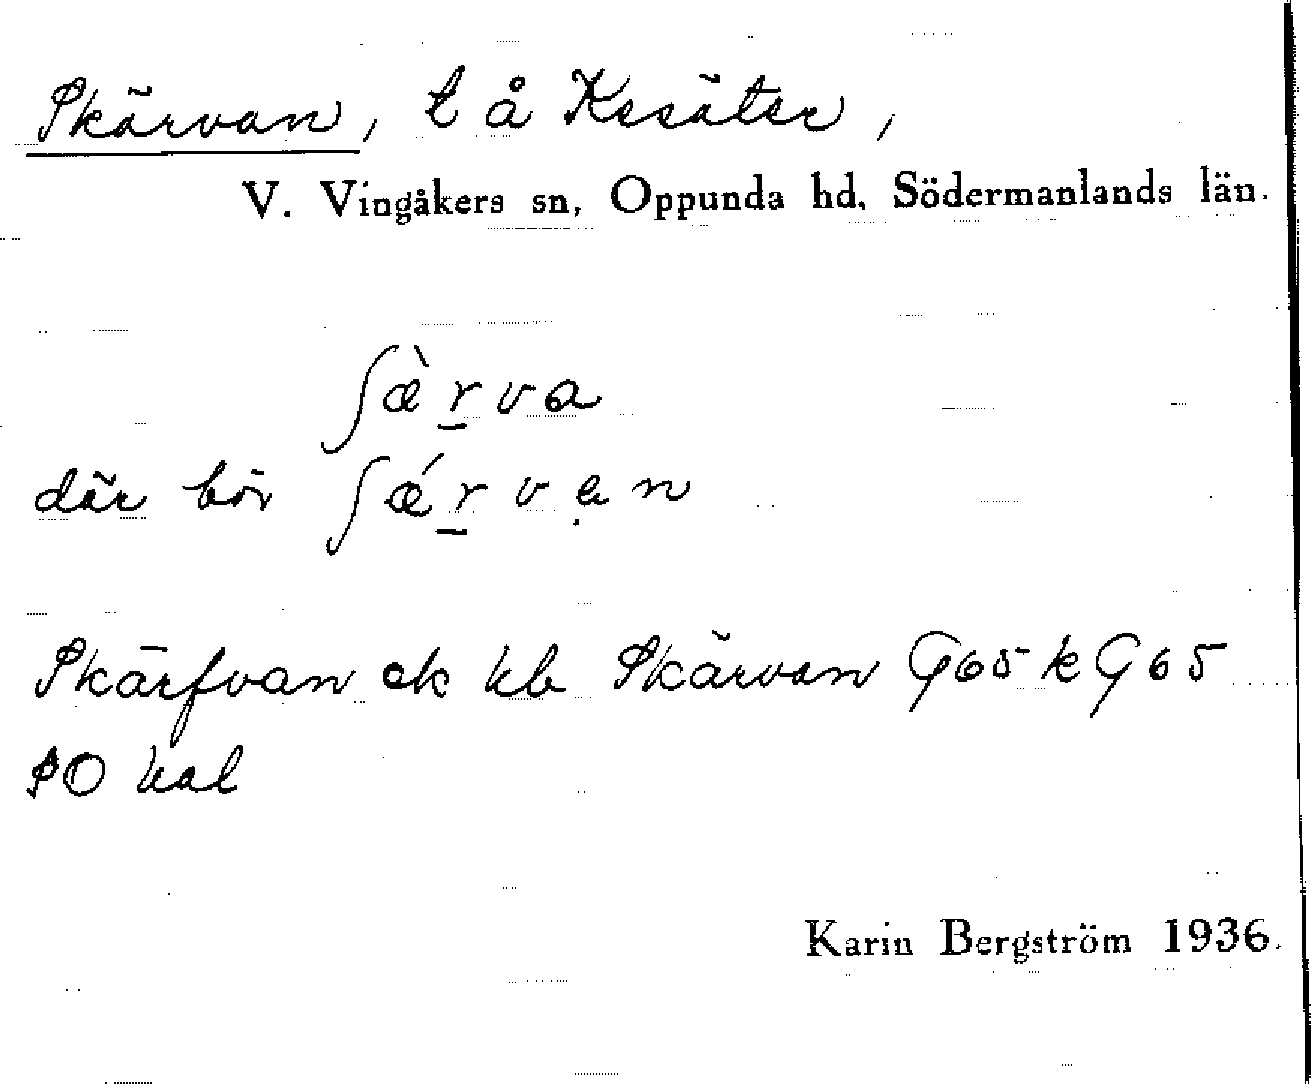 Skärvan, t å Kesäter,
V. Vingåkers sn, Oppunda hd. Södermanlands län.
ʃæ̀r̲va
där bör ʃǽr̲vẹn
Skärfvan ek kb Skärvan G65 k G65
SO kal
Karin Bergström 1936.